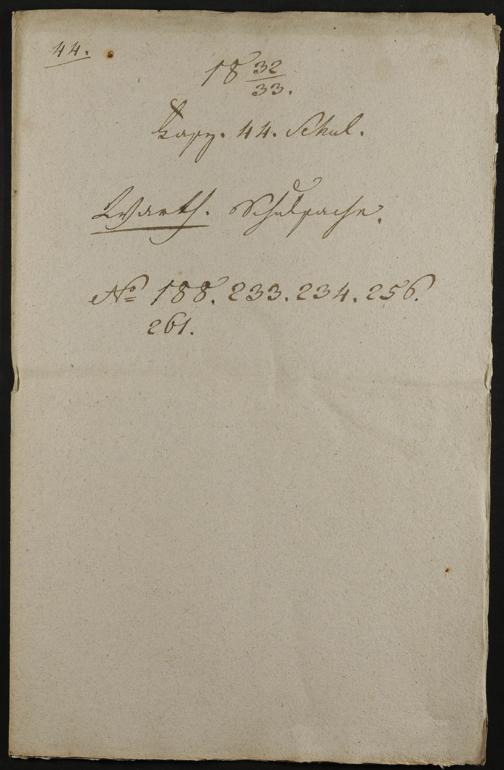 44.
18 32/33.
Fasz. 44. Schul.
Warth. Schulsache.
No 188. 233. 234. 256.
261.